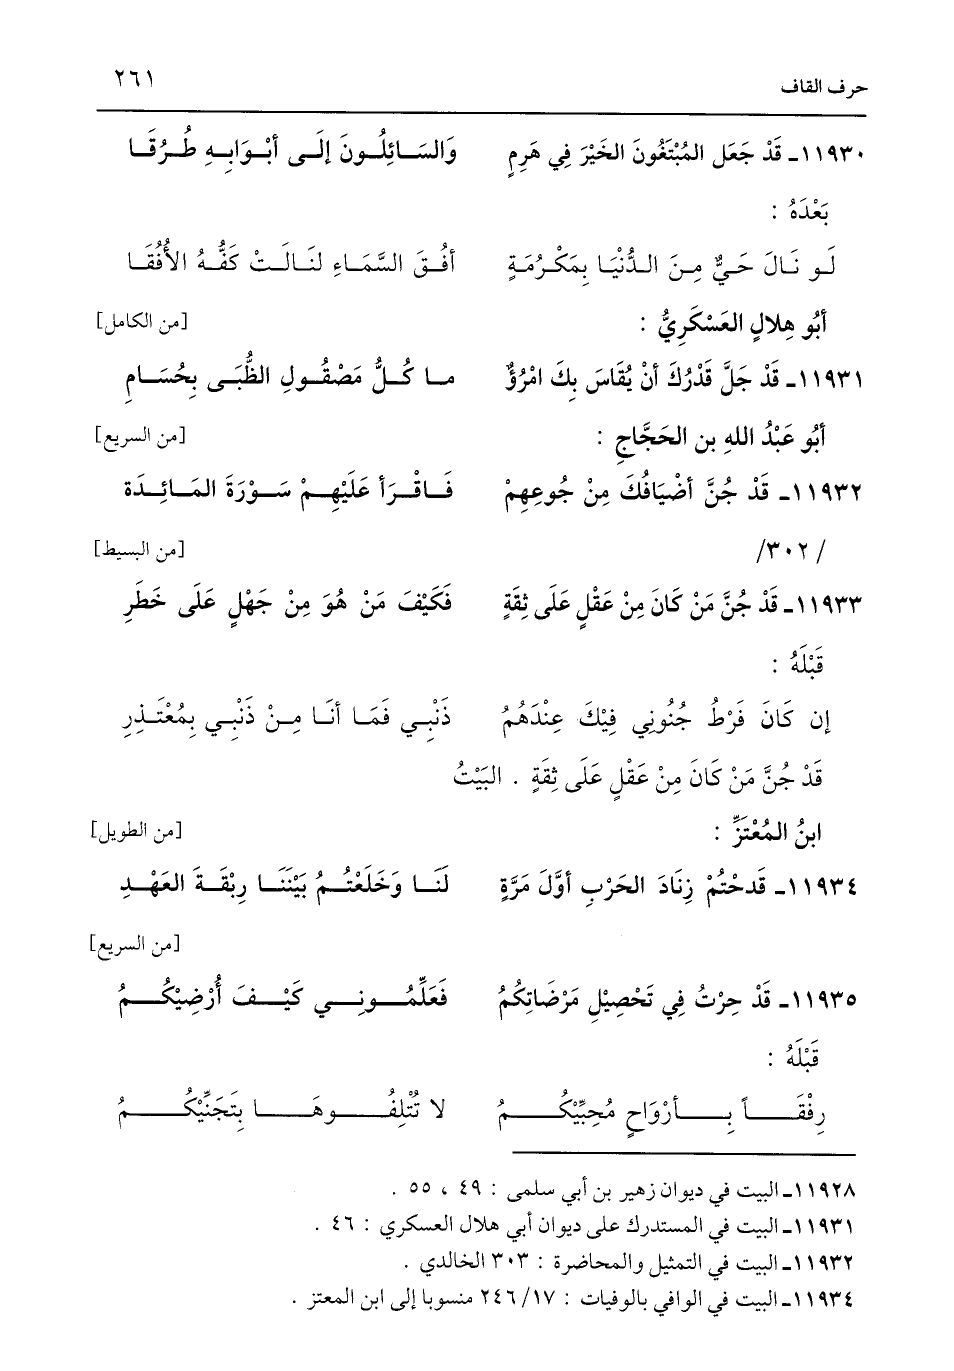 حرف القاف ٢٦١
١١٩٣٠ـ قَدْ جَعَل المُبْتَغُونَ الخَيْرَ فِي هَرِمٍ وَالسَائِلُونَ إِلَى أبْوَابِهِ طُرُقَا
بَعْدَهُ :
لَو نَالَ حَيٌّ مِنَ الدُّنْيَا بِمَكْرُمَةٍ أفُقَ السَّمَاءِ لنَالَتْ كَفُّهُ الأُفُقَا
أبُو هِلالٍ العَسْكَرِيُّ : [من الكامل]
١١٩٣١ـ قَدْ جَلَّ قَدْرُكَ أنْ يُقَاسَ بِكَ امْرُؤٌ ما كُلُّ مَصْقُولِ الظُّبَى بِحُسَامِ
أبُو عَبْدُ اللهِ بن الحَجَّاجِ : [من السريع]
١١٩٣٢ـ قَدْ جُنَّ أضْيَافُكَ مِنْ جُوعِهِمْ فَاقْرَأ عَلَيْهِمْ سَوْرَةَ المَائِدَة
/ ٣٠٢/ [من البسيط]
١١٩٣٣ـ قَدْ جُنَّ مَنْ كَانَ مِنْ عَقْلٍ عَلَى ثِقَةٍ فَكَيْفَ مَنْ هُوَ مِنْ جَهْلٍ عَلَى خَطَرِ
قَبْلَهُ :
إن كَانَ فَرْطُ جُنُونِي فِيْكَ عِنْدَهُمُ ذَنْبِي فَمَا أنَا مِنْ ذَنْبِي بِمُعْتَذِرِ
قَدْ جُنَّ مَنْ كَانَ مِنْ عَقْلٍ عَلَى ثِقَةٍ . البَيْتُ
ابنُ المُعْتَزِّ : [من الطويل]
١١٩٣٤ـ قَدحْتُمْ زِنَادَ الحَرْبِ أوَّلَ مَرَّةٍ لَنَا وَخَلَعْتُمُ بَيْنَنَا رِبْقَةَ العَهْدِ
[من السريع]
١١٩٣٥ـ قَدْ حِرْتُ فِي تَحْصِيْلِ مَرْضَاتِكُمُ فَعَلِّمُونِي كَيْفَ أُرْضِيْكُمُ
قَبْلَهُ :
رِفْقَاً بِأرْوَاحِ مُحِبِّيْكُمُ لا تُتْلِفُوهَا بِتَجَنِّيْكُمُ
١١٩٢٨ـ البيت في ديوان زهير بن أبي سلمى : ٤٩ ، ٥٥ .
١١٩٣١ـ البيت في المستدرك على ديوان أبي هلال العسكري : ٤٦ .
١١٩٣٢ـ البيت في التمثيل والمحاضرة : ٣٠٣ الخالدي .
١١٩٣٤ـ البيت في الوافي بالوفيات : ١٧/ ٢٤٦ منسوبا إلى ابن المعتز .